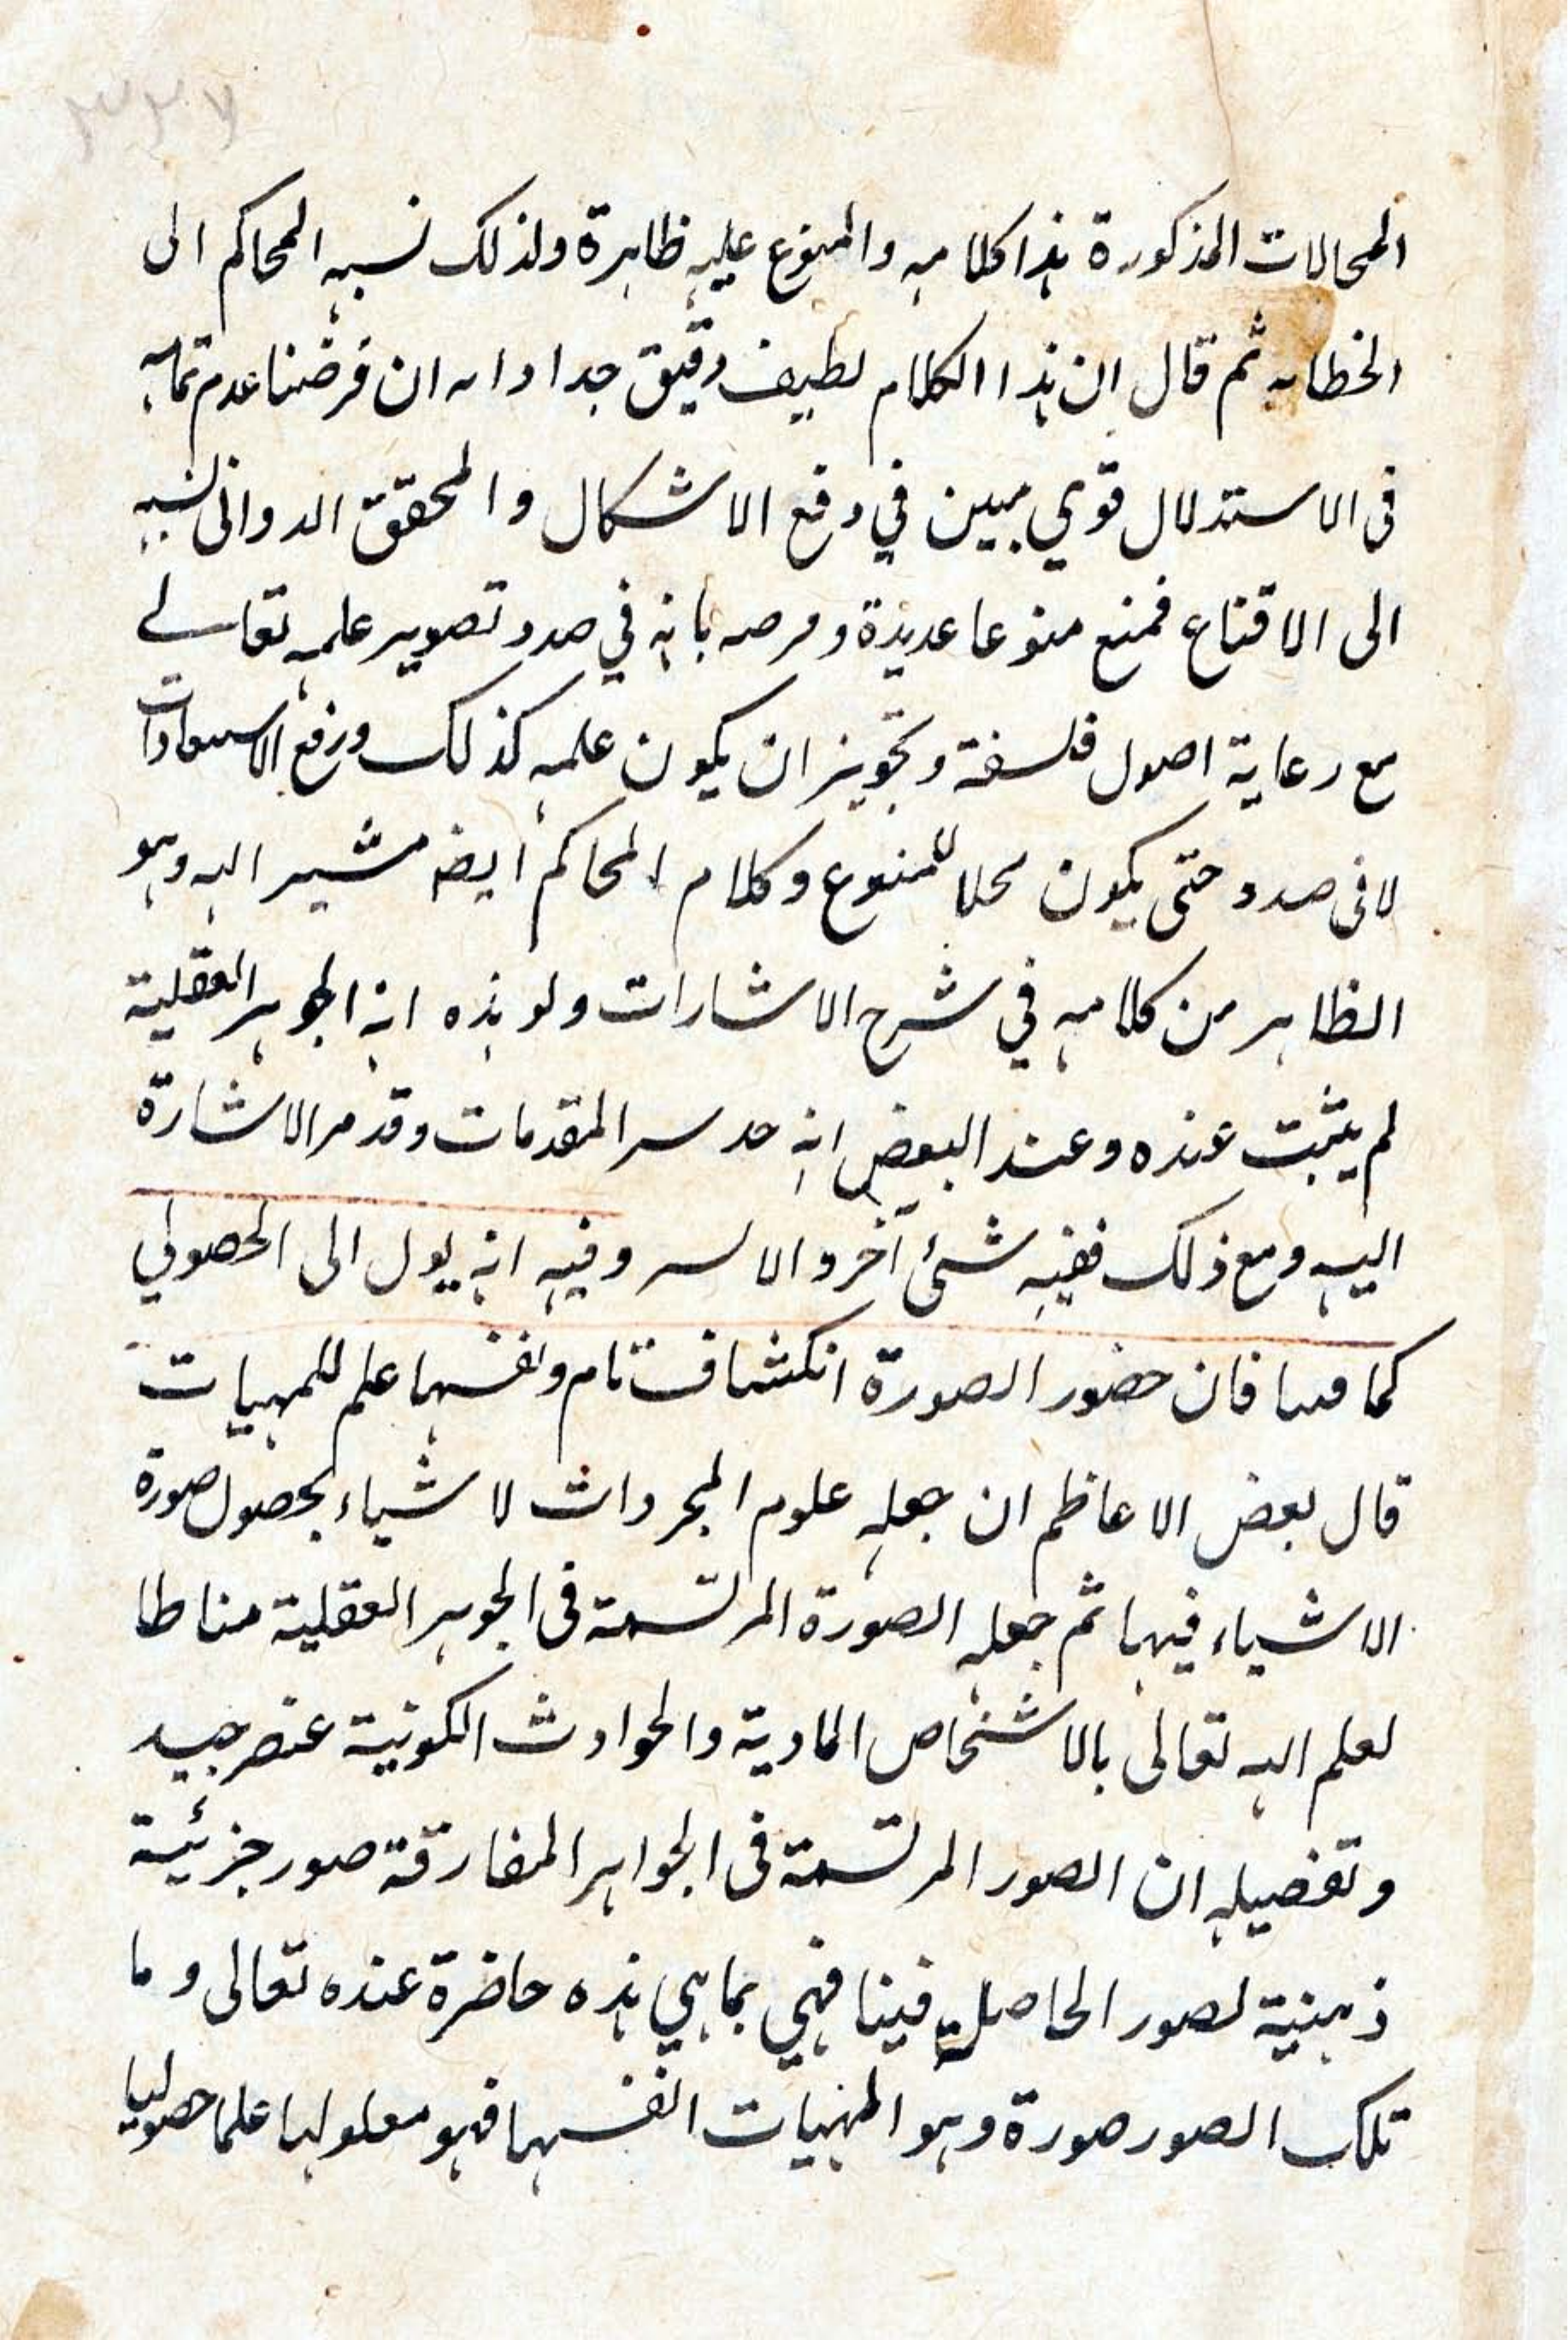 ٣٢٧
المحالات المذكورة هذا كلامه والمنوع عليه ظاهرة ولذلك نسبه المحاكم الى
الخطابه ثم قال ان هذا الكلام لطيف دقيق جدا وانه ان فرضنا عدم تمامه
فى الاستدلال قوي مبين في دفع الاشكال والمحقق الدوانى نسبه
الى الاقناع فمنع منوعا عديدة بانه في صدد تصوير علمه تعالى
مع رعاية اصول فلسفة وتجويز ان يكون علمه كذلك ورفع
لا فى صدد حتى يكون محلا للمنوع وكلام المحاكم ايضا مشير اليه وهو
الظاهر من كلامه في شرح الاشارات ولو هذه انه الجوهر العقلية
لم يثبت عنده وعند البعض انه المقدمات وقد مر الاشارة
اليه ومع ذلك ففيه شئ آخر وفيه انه يول الى الحصولي
كما فان حضور الصورة انكشاف تام ونفسها علم للمهيات
قال بعض الاعاظم ان جعله علوم المجردات لاشياء بحصول صورة
الاشياء فيها ثم جعله الصورة المرتسمة فى الجوهر العقلية مناطا
لعلم اليه تعالى بالاشخاص المادية والحوادث الكونية غير جيد
وتفصيله ان الصور المرتسمة فى الجواهر المفارقة صور جزئية
ذهنية لصور الحاصلة فينا فهي بما هي هذه حاضرة عنده تعالى وما
تلك الصور صورة وهو المهيات انفسها فهو معلولها علما حصوليا